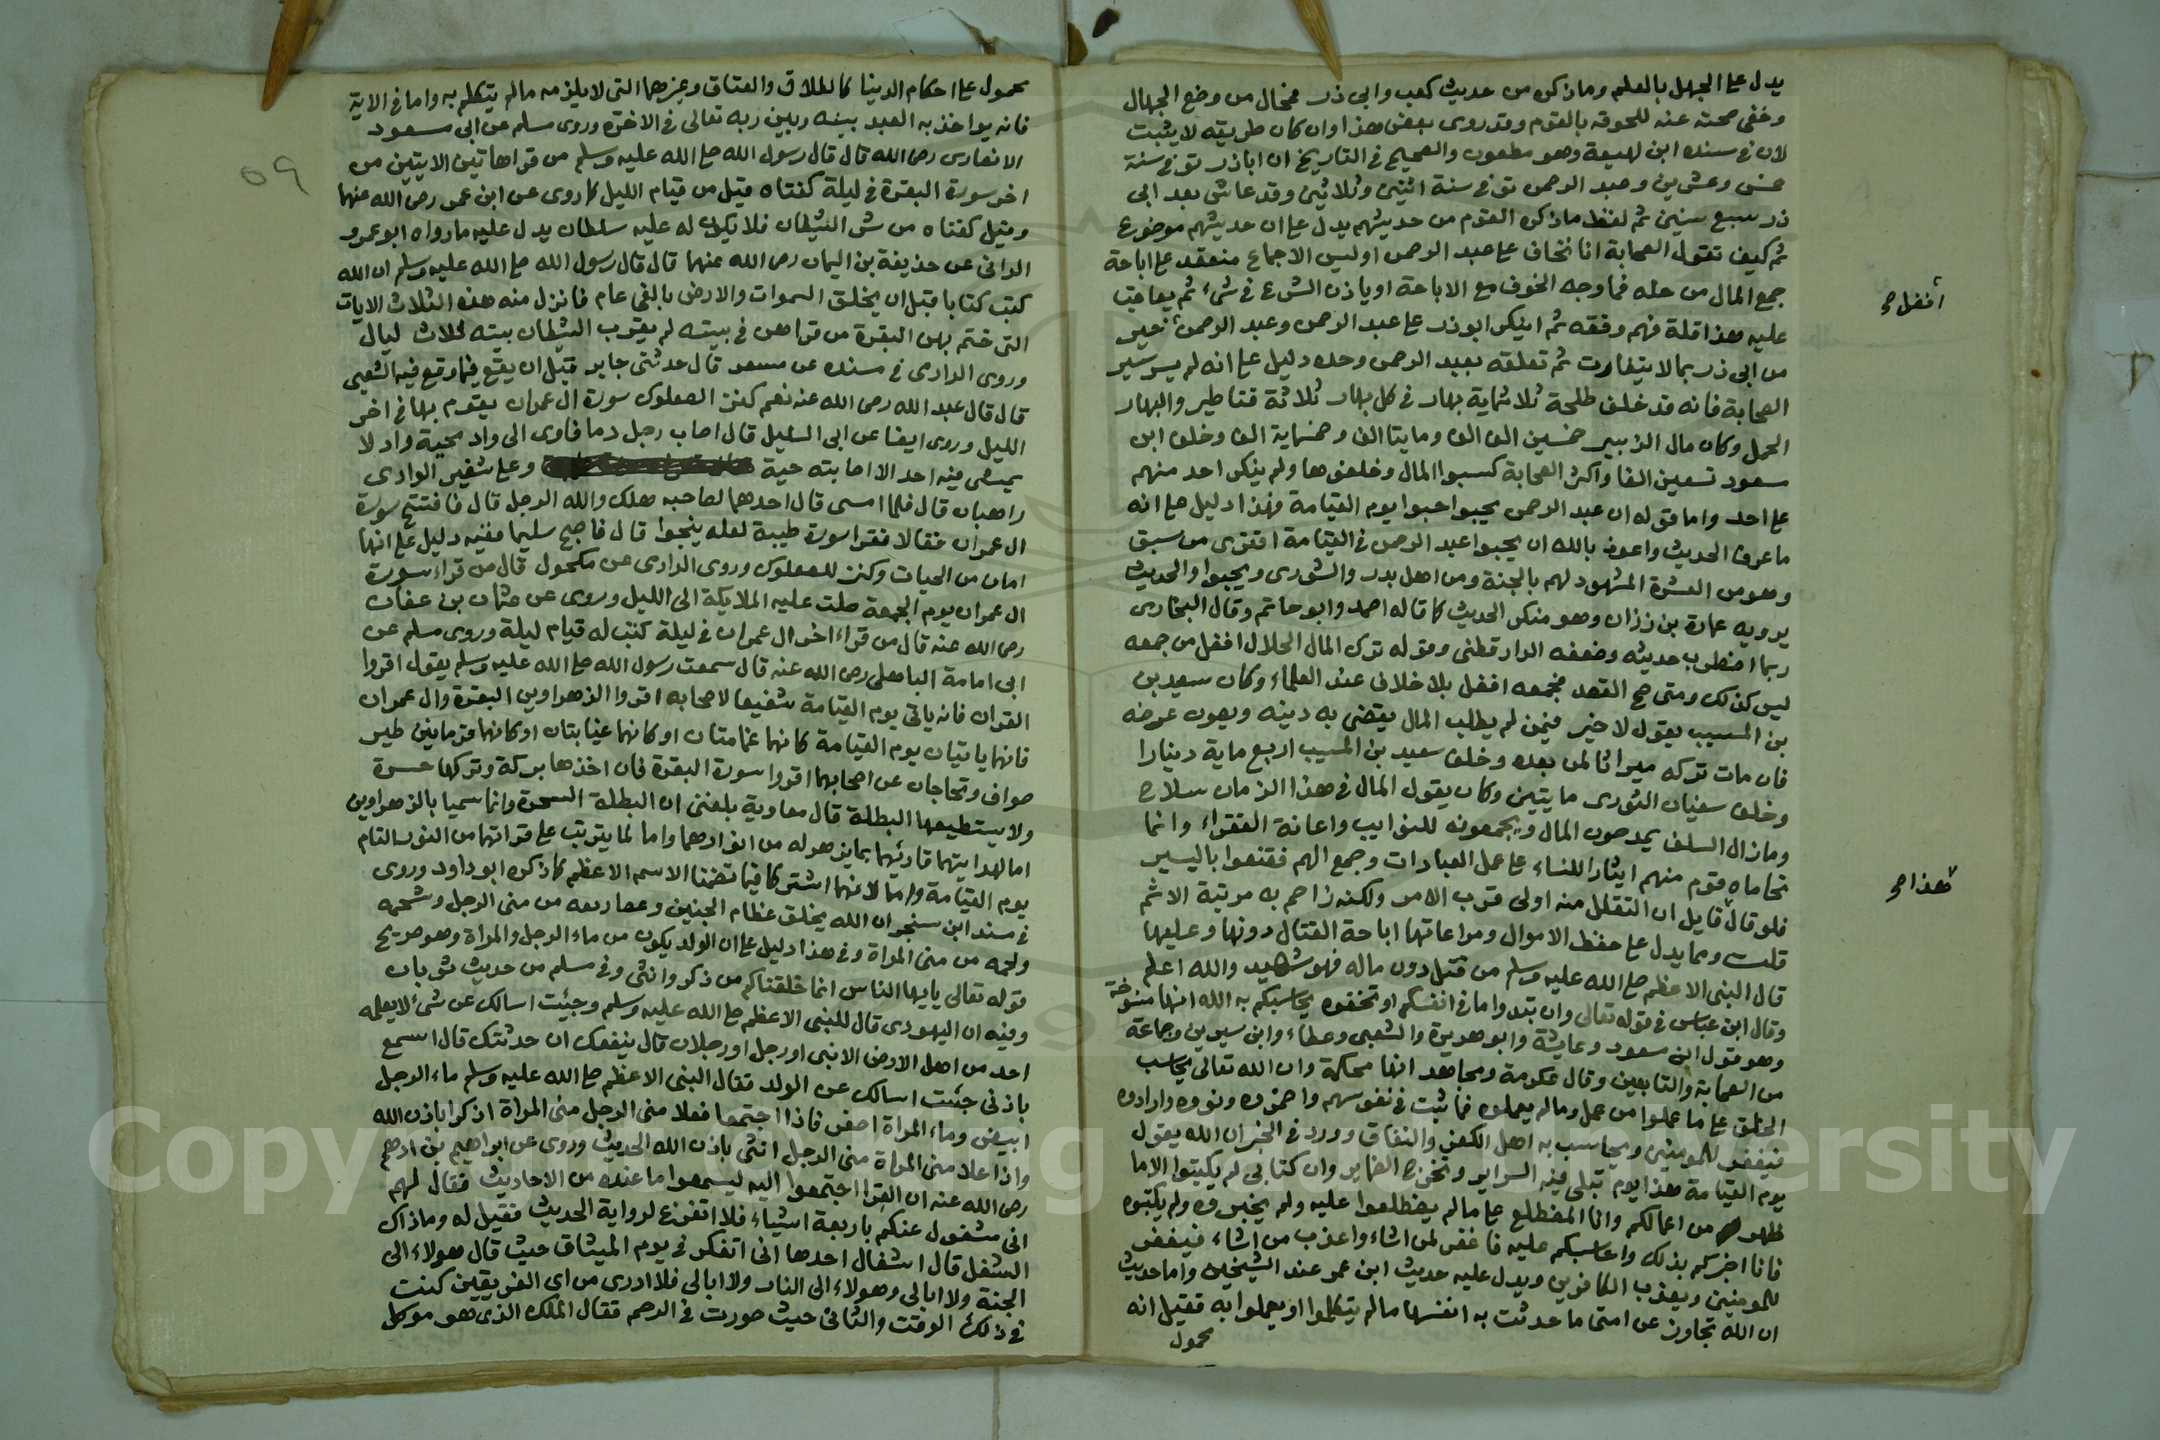 يدل على الجهل بالعلم وما ذكره من حديث كعب وابى ذر فمحال من وضع الجهال
وخفى صحته عنه للحوقه بالقوم وقد روى بعض هذا وان كان طريقه لا يثبت
لان فى سنده ابن لهيعة وهو مطعون والصحيح فى التاريخ ان اباذر توفى سنة
خمس وعشرين وعبد الرحمن توفى سنة اثنين وثلاثين وقد عاش بعد ابى
ذر سبع سنين ثم لفظ ما ذكره القوم من حديثهم يدل على ان حديثهم موضوع
ثم كيف تقول الصحابة انا نخاف على عبد الرحمن اوليس الاجماع منعقد على اباحة
جمع المال من حله فما وجه الخوف مع الاباحة او ياذن الشرع فى شىء ثم يعاقب
عليه هذا قلة فهم وفقه ثم اينكر ابو ذر على عبد الرحمن وعبد الرحمن خير
من ابى ذر بما لا يتقارب ثم تعلقه بعبد الرحمن وحده دليل على انه لم يسر سير
الصحابة فانه قد خلف طلحة ثلاثماية بهار فى كل بهار ثلاثة قناطير والبهار
الحمل وكان مال الزبير خمسين الف الف ومايتا الف وخمسماية الف وخلف ابن
مسعود تسعين الفا واكثر الصحابة كسبوا المال وخلفوها ولم ينكر احد منهم
على احد واما قوله ان عبد الرحمن يحبوا حبوا يوم القيامة فهذا دليل على انه
ما عرف الحديث واعوذ بالله ان يحبوا عبد الرحمن فى القيامة افترى من سبق
وهو من العشرة المشهود لهم بالجنة ومن اهل بدر والشورى ويحبوا والحديث
يرويه عمارة بن زاذان وهو منكر الحديث كما قاله احمد وابو حاتم وقال البخارى
ربما اضطرب حديثه وضعفه الدارقطنى وقوله ترك المال الحلال افضل من جمعه
ليس كذلك ومتى صح القصد فجمعه افضل بلا خلاف عند العلماء وكان سعيد بن
بن المسيب يقول لا خير فيمن لم يطلب المال يقضى به دينه ويصون عرضه
فان مات تركه ميراثا لمن بعده وخلف سعيد بن المسيب اربع ماية دينارا
وخلف سفيان الثورى مايتين وكان يقول المال فى هذا الزمان سلاح
وما زال السلف يمدحون المال ويجمعونه للنوايب واعانة الفقراء وانما
تحاماه قوم منهم ايثارا للنساء على عمل العبادات وجمع الهم فقنعوا باليسير
فلو قال قايل ان التقلل منه اولى قرب الامر ولكنه زاحم به مرتبة الاثم
قلت ومما يدل على حفظ الاموال ومراعاتها اباحة القتال دونها وعليها
قال النبى الاعظم صلى الله عليه وسلم من قتل دون ماله فهو شهيد والله اعلم
وقال ابن عباس فى قوله تعالى وان تبدوا ما فى انفسكم او تخفوه يحاسبكم به الله انها منسوخة
وهو قول ابن مسعود وعايشة وابو هريرة والشعبى وعطاء وابن سيرين وجماعة
من الصحابة والتابعين وقال عكرمة ومجاهد انها محكمة وان الله تعالى يحاسب
الخلق على ما عملوا من عمل وما لم يعملوه مما ثبت فى نفوسهم واضمروه ونووه وارادوه
فيغفر للمومنين ويحاسب به اهل الكفر والنفاق وورد فى الخبر ان الله يقول
يوم القيامة هذا يوم تبلى فيه السراير وتخرج الضماير وان كتابى لم يكتبوا الا ما
ظهر من اعمالكم وانا المطلع على ما لم يطلعوا عليه ولم يخبروه ولم يكتبوه
فانا اخبركم بذلك واحاسبكم عليه فاغفر لمن اشاء واعذب من اشاء فيغفر
للمومنين ويعذب الكافرين ويدل عليه حديث ابن عمر عند الشيخين واما حديث
ان الله تجاوز عن امتى ما حدثت به انفسها ما لم يتكلموا او يعملوا به فقيل انه
محمول
افضل صح
هذا صح
٥٩
محمول على احكام الدنيا كالطلاق والعتاق وغيرهما التى لا يلزمه ما لم يتكلم به واما فى الاية
فانه يواخذ به العبد بينه وبين ربه تعالى فى الاخرة وروى مسلم عن ابى مسعود
الانصارى رضى الله قال قال رسول الله صلى الله عليه وسلم من قرا هاتين الايتين من
اخر سورة البقرة فى ليلة كفتاه قيل من قيام الليل كما روى عن ابن عمر رضى الله عنهما
وقيل كفتاه من شر الشيطان فلا يكون له عليه سلطان يدل عليه ما رواه ابو عمرو
الدانى عن حذيفة بن اليمان رضى الله عنهما قال قال رسول الله صلى الله عليه وسلم ان الله
كتب كتابا قبل ان يخلق السموات والارض بالفى عام فانزل منه هذه الثلاث الايات
التى ختم بهن البقرة من قراهن فى بيته لم يقرب الشيطان بيته ثلاث ليال
وروى الدارمى فى مسنده عن مسعر قال حدثنى جابر قبل ان يقع فيما وقع فيه الشعبى
قال قال عبد الله رضى الله عنه نعم كنز الصعلوك سورة ال عمران يقوم بها فى اخر
الليل وروى ايضا عن ابى السليل قال اصاب رجل دما فاوى الى واد مجنة واد لا
يمشى فيه احد الا اصابته حية وعلى شفير الوادى
راهبان قال فلما امسى قال احدهما لصاحبه هلك والله الرجل قال فافتتح سورة
ال عمران فقالا فقرا سورة طيبة لعله ينجوا قال فاصبح سليما ففيه دليل على انها
امان من الحيات وكنز للصعلوك وروى الدارمى عن مكحول قال من قراء سورة
ال عمران يوم الجمعة صلت عليه الملايكة الى الليل وروى عن عثمان بن عفان
رضى الله عنه قال من قراء اخر ال عمران فى ليلة كتب له قيام ليلة وروى مسلم عن
ابى امامة الباهلى رضى الله عنه قال سمعت رسول الله صلى الله عليه وسلم يقول اقروا
القران فانه ياتى يوم القيامة شفيعا لاصحابه اقروا الزهراوين البقرة وال عمران
فانهما ياتيان يوم القيامة كانهما غمامتان او كانهما غيابتان او كانهما فرقان من طير
صواف وتحاجان عن اصحابهما اقروا سورة البقرة فان اخذها بركة وتركها حسرة
ولا يستطيعها البطلة قال معاوية بلغنى ان البطلة السحرة وانما سميا بالزهراوين
اما لهدايتهما قارئهما بما يزهر له من انوارهما واما لما يترتب على قراتهما من النور التام
يوم القيامة واما لانهما اشتركا فيما تضمنا الاسم الاعظم كما ذكره ابو داود وروى
فى مسند ابن سنجر ان الله يخلق عظام الجنين وغضاريفه من منى الرجل وشحمه
ولحمه من منى المراة وفى هذا دليل على ان الولد يكون من ماء الرجل والمراة وهو صريح
قوله تعالى يايها الناس انما خلقناكم من ذكر وانثى وفى مسلم من حديث ثوبان
وفيه ان اليهودى قال للنبى الاعظم صلى الله عليه وسلم وجئت اسالك عن شىء لا يعلمه
احد من اهل الارض الا نبى او رجل او رجلان قال ينفعك ان حدثتك قال اسمع
باذنى جئت اسالك عن الولد فقال النبى الاعظم صلى الله عليه وسلم ماء الرجل
ابيض وماء المراة اصفر فاذا اجتمعا فعلا منى الرجل منى المراة اذكرا باذن الله
واذا علا منى المراة منى الرجل انثى باذن الله الحديث وروى عن ابراهيم بن ادهم
رضى الله عنه ان القرا اجتمعوا اليه ليسمعوا ما عنده من الاحاديث فقال لهم
انى مشغول عنكم باربعة اشياء فلا اتفرغ لرواية الحديث فقيل له وما ذاك
الشغل قال اشغال احدها انى اتفكر فى يوم الميثاق حيث قال هولاء الى
الجنة ولا ابالى وهولاء الى النار ولا ابالى فلا ادرى من اى الفريقين كنت
فى ذلك الوقت والثانى حيث صورت فى الرحم فقال الملك الذى هو موكل